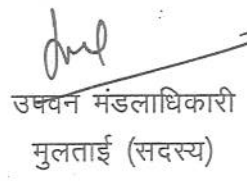 उपवन मंडलाधिकारी
मुलताई (सदस्य)